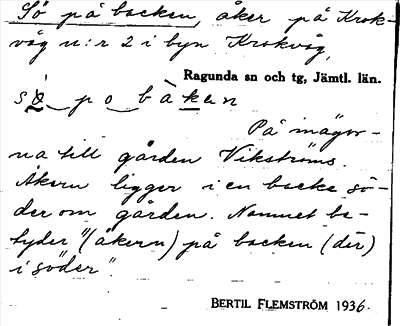 Sö på backen, åker på Krok-
våg n:r 2 i byn Krokvåg,
Ragunda sn och tg, Jämtl. län.
sö po bàken
På ägor-
na till gården Vikströms.
Åkern ligger i en backe sö-
der om gården. Namnet be-
tyder "(åkern) på backen (där)
i söder".
BERTIL FLEMSTRÖM 1936.